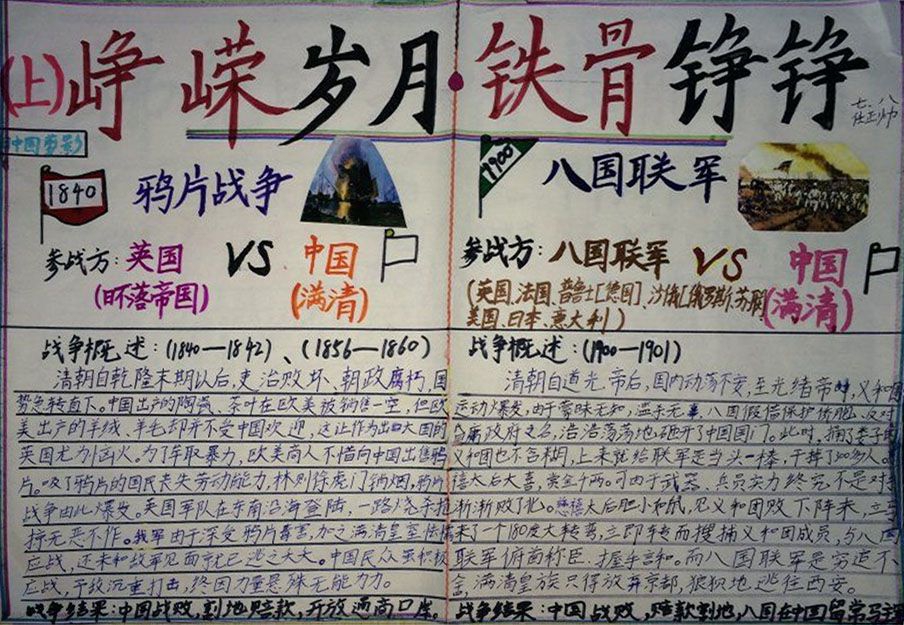 (上)峥嵘岁月·铁骨铮铮
七、八
任正帅
中国剪影
1840
鸦片战争
参战方:英国 VS 中国
(日不落帝国) (满清)
战争概述:(1840—1842)、(1856—1860)
清朝自乾隆末期以后,吏治败坏、朝政腐朽,国
势急转直下。中国出产的陶瓷、茶叶在欧美被销售一空,但欧
美出产的羊绒、羊毛却并不受中国欢迎,这让作为出口大国的
英国尤为恼火。为了牟取暴力,欧美商人不惜向中国出售鸦
片。吸了鸦片的国民丧失劳动能力,林则徐虎门销烟,鸦片
战争由此爆发。英国军队在东南沿海登陆,一路烧杀抢
掠无恶不作。我军由于深受鸦片毒害,加之满清皇室怯懦
应战,还未和敌军见面就已逃之夭夭。中国民众虽积极
应战,予敌沉重打击,终因力量悬殊无能力力。
战争结果:中国战败,割地赔款,开放通商口岸。
1900
八国联军
参战方:八国联军 VS 中国
(英国、法国、普鲁士[德国]、沙俄[俄罗斯、苏联] (满清)
美国、日本、意大利)
战争概述:(1900—1901)
清朝自道光帝后,国内动荡不安,至光绪帝时,义和团
运动爆发,由于蒙昧无知,滥杀无辜,八国假借保护侨胞、反对
腐政府之名,浩浩荡荡地砸开了中国国门。此时,捅了娄子的
义和团也不含糊,上来就给联军是当头一棒,干掉了
禧太后大喜,赏金千两。可由于武器、兵员实力终究不是对手
渐渐败了北。慈禧太后胆小如鼠,见义和团败下阵来,立马
来了个180度大转弯,立即转而搜捕义和团成员,与八国
联军俯首称臣,握手言和。而八国联军是穷追不
舍,满清皇族只得放弃京都,狼狈地逃往西安。
战争结果:中国战败,赔款割地,八国在中国留常驻